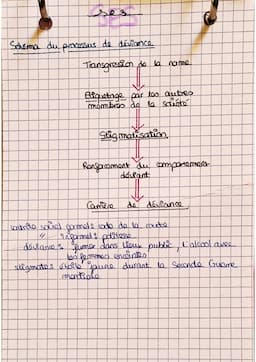 SES
Schéma du processus de déviance
Transgression de la norme
Etiquetage par les autres
membres de la société
Stigmatisation
Renforcement du comportement
déviant
Carrière de déviance
contrôle social formel : code de la route
" informel : politesse
déviance : fumer dans lieux public, l'alcool avec
les femmes enceintes
stigmates : étoile jaune durant la Seconde Guerre
mondiale